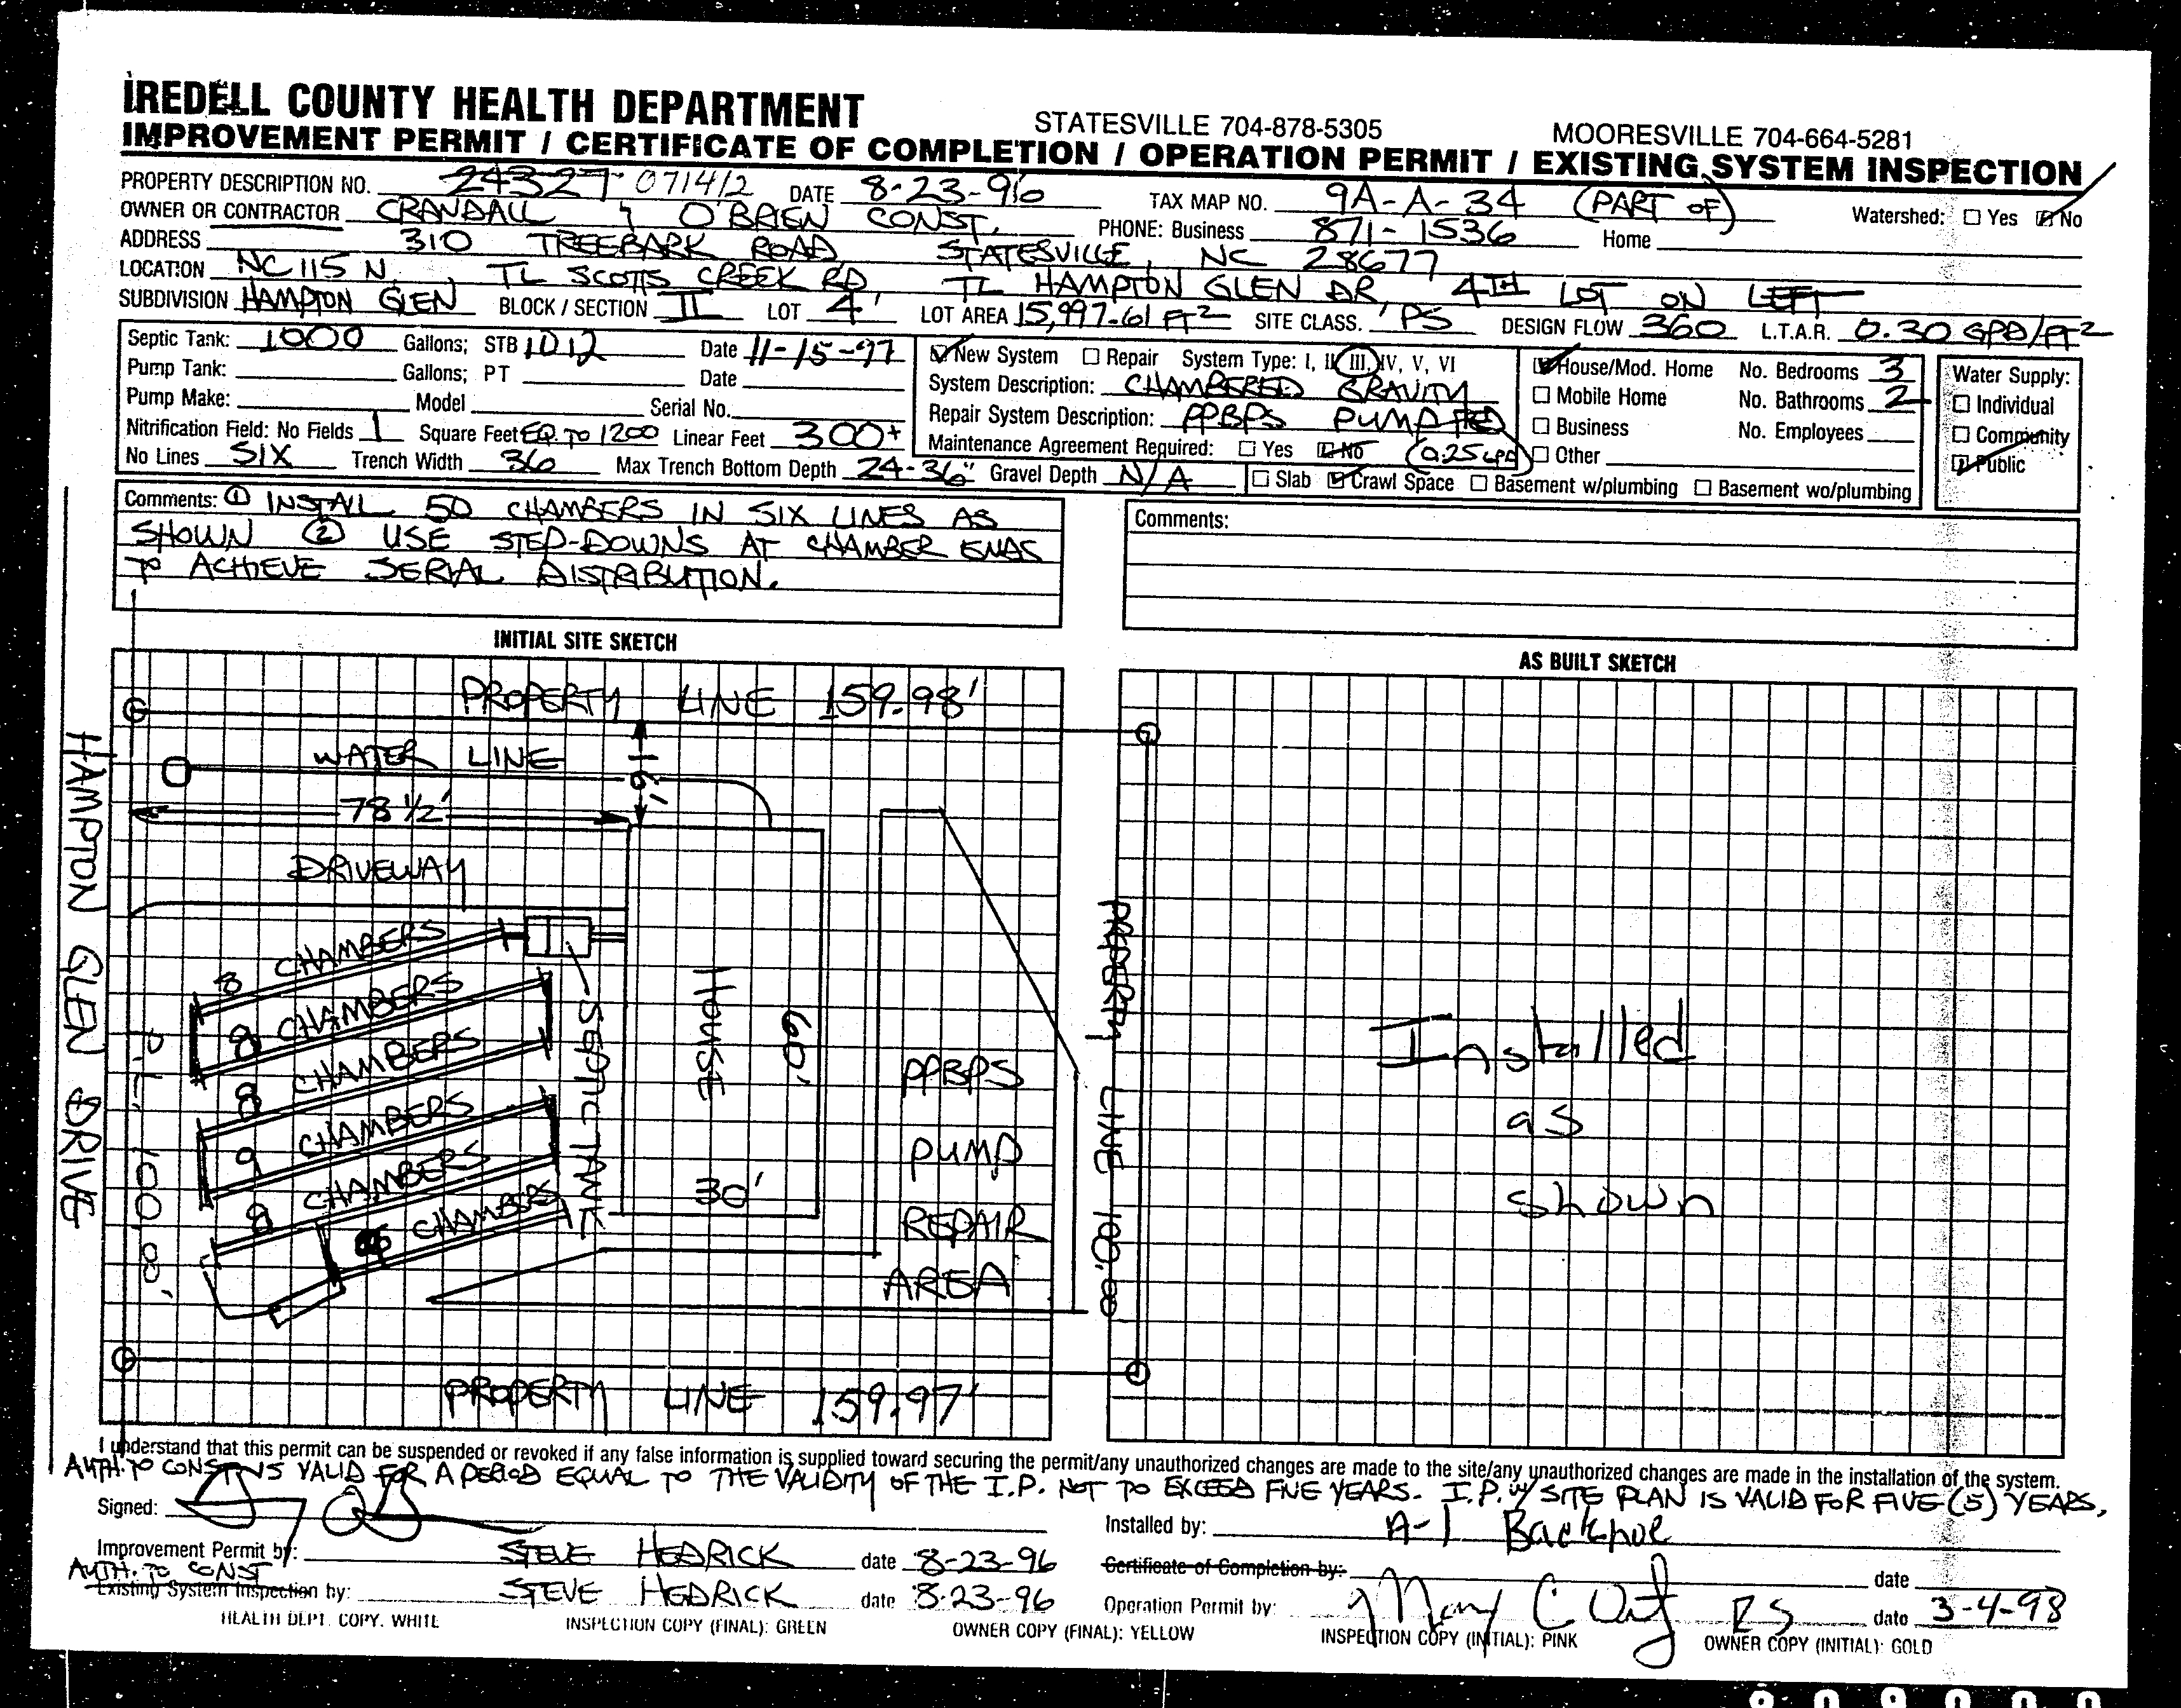 IREDELL COUNTY HEALTH DEPARTMENT
STATESVILLE 704-878-5305 MOORESVILLE 704-664-5281
IMPROVEMENT PERMIT / CERTIFICATE OF COMPLETION / OPERATION PERMIT / EXISTING SYSTEM INSPECTION
PROPERTY DESCRIPTION NO. 24327 071412 DATE 8-23-96 TAX MAP NO. 9A-A-34 (PART OF) Watershed: ☐ Yes ☑ No
OWNER OR CONTRACTOR CRANDALL & O'BRIEN CONST. PHONE: Business 871-1536 Home
ADDRESS 310 TREEBARK ROAD STATESVILLE, NC 28677
LOCATION NC 115 N, TL SCOTTS CREEK RD, TL HAMPTON GLEN DR, 4TH LOT ON LEFT
SUBDIVISION HAMPTON GLEN BLOCK / SECTION II LOT 4 LOT AREA 15,997.61 FT² SITE CLASS. PS DESIGN FLOW 360 L.T.A.R. 0.30 GPD/FT²
Septic Tank: 1000 Gallons; STB 1012 Date 11-15-97
Pump Tank: Gallons; PT Date
Pump Make: Model Serial No.
Nitrification Field: No Fields 1 Square Feet EQ. TO 1200 Linear Feet 300+
No Lines SIX Trench Width 36 Max Trench Bottom Depth 24-36" Gravel Depth N/A
☑ New System ☐ Repair System Type: I, II, III, IV, V, VI
System Description: CHAMBERED GRAVITY
Repair System Description: PPBPS PUMP FED
Maintenance Agreement Required: ☐ Yes ☑ No (0.25 GPD)
☐ Slab ☑ Crawl Space ☐ Basement w/plumbing ☐ Basement wo/plumbing
☑ House/Mod. Home No. Bedrooms 3
☐ Mobile Home No. Bathrooms 2
☐ Business No. Employees
☐ Other
Water Supply:
☐ Individual
☐ Community
☑ Public
Comments: ① INSTALL 50 CHAMBERS IN SIX LINES AS
SHOWN ② USE STEP-DOWNS AT CHAMBER ENDS
TO ACHIEVE SERIAL DISTRIBUTION.
Comments:
INITIAL SITE SKETCH
AS BUILT SKETCH
PROPERTY LINE 159.98'
WATER LINE
16'
78 1/2'
DRIVEWAY
HAMPTON GLEN DRIVE
P.L. 100.8'
8 CHAMBERS
8 CHAMBERS
8 CHAMBERS
9 CHAMBERS
9 CHAMBERS
CHAMBERS
SEPTIC TANK
HOUSE
60'
30'
PPBPS
PUMP
REPAIR
AREA
PROPERTY LINE 100.8'
PROPERTY LINE 159.97'
Installed
as
shown
I understand that this permit can be suspended or revoked if any false information is supplied toward securing the permit/any unauthorized changes are made to the site/any unauthorized changes are made in the installation of the system.
AUTH. TO CONST IS VALID FOR A PERIOD EQUAL TO THE VALIDITY OF THE I.P. NOT TO EXCEED FIVE YEARS. I.P. W/ SITE PLAN IS VALID FOR FIVE (5) YEARS.
Signed:
Installed by: A-1 Backhoe
Improvement Permit by: STEVE HEDRICK date 8-23-96
Certificate of Completion by: date
AUTH. TO CONST
Existing System Inspection by: STEVE HEDRICK date 8-23-96
Operation Permit by: RS date 3-4-98
HEALTH DEPT. COPY. WHITE INSPECTION COPY (FINAL): GREEN OWNER COPY (FINAL): YELLOW INSPECTION COPY (INITIAL): PINK OWNER COPY (INITIAL): GOLD